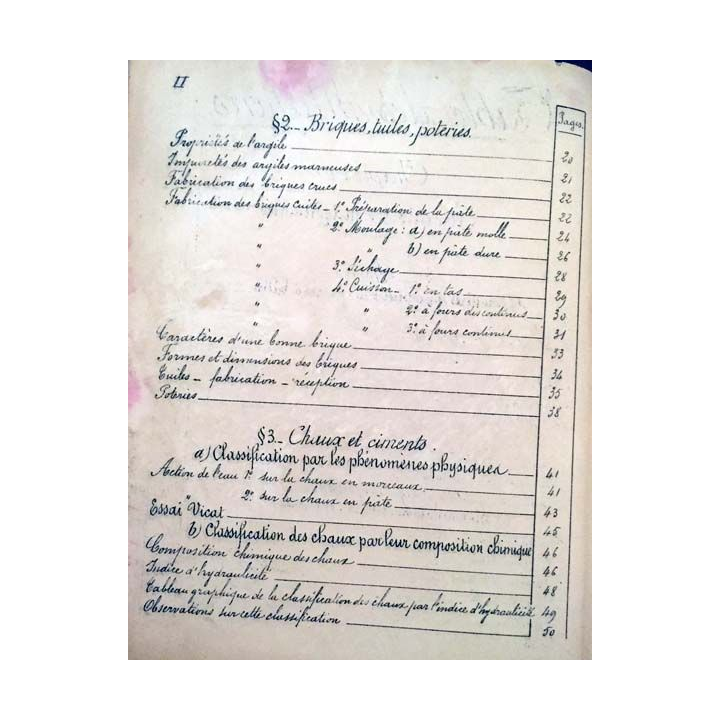 II
Pages.
§2._ Briques, tuiles, poteries.
Propriétés de l'argile 20
Impuretés des argiles marneuses 21
Fabrication des briques crues 22
Fabrication des briques cuites _ 1° Préparation de la pâte 22
" 2° Moulage : a) en pâte molle 24
" " b) en pâte dure 26
" 3° Séchage 28
" 4° Cuisson _ 1° en tas 29
" " 2° à fours discontinus 30
" " 3° à fours continus 31
Caractères d'une bonne brique 33
Formes et dimensions des briques 34
Tuiles _ fabrication _ réception 35
Poteries 38
§3._ Chaux et ciments
a) Classification par les phénomènes physiques. 41
Action de l'eau 1° sur la chaux en morceaux. 41
" 2° sur la chaux en pâte 43
Essai Vicat 45
b) Classification des chaux par leur composition chimique 46
Composition chimique des chaux 46
Indice d'hydraulicité 48
Tableau graphique de la classification des chaux par l'indice d'hydraulicité 49
Observations sur cette classification 50